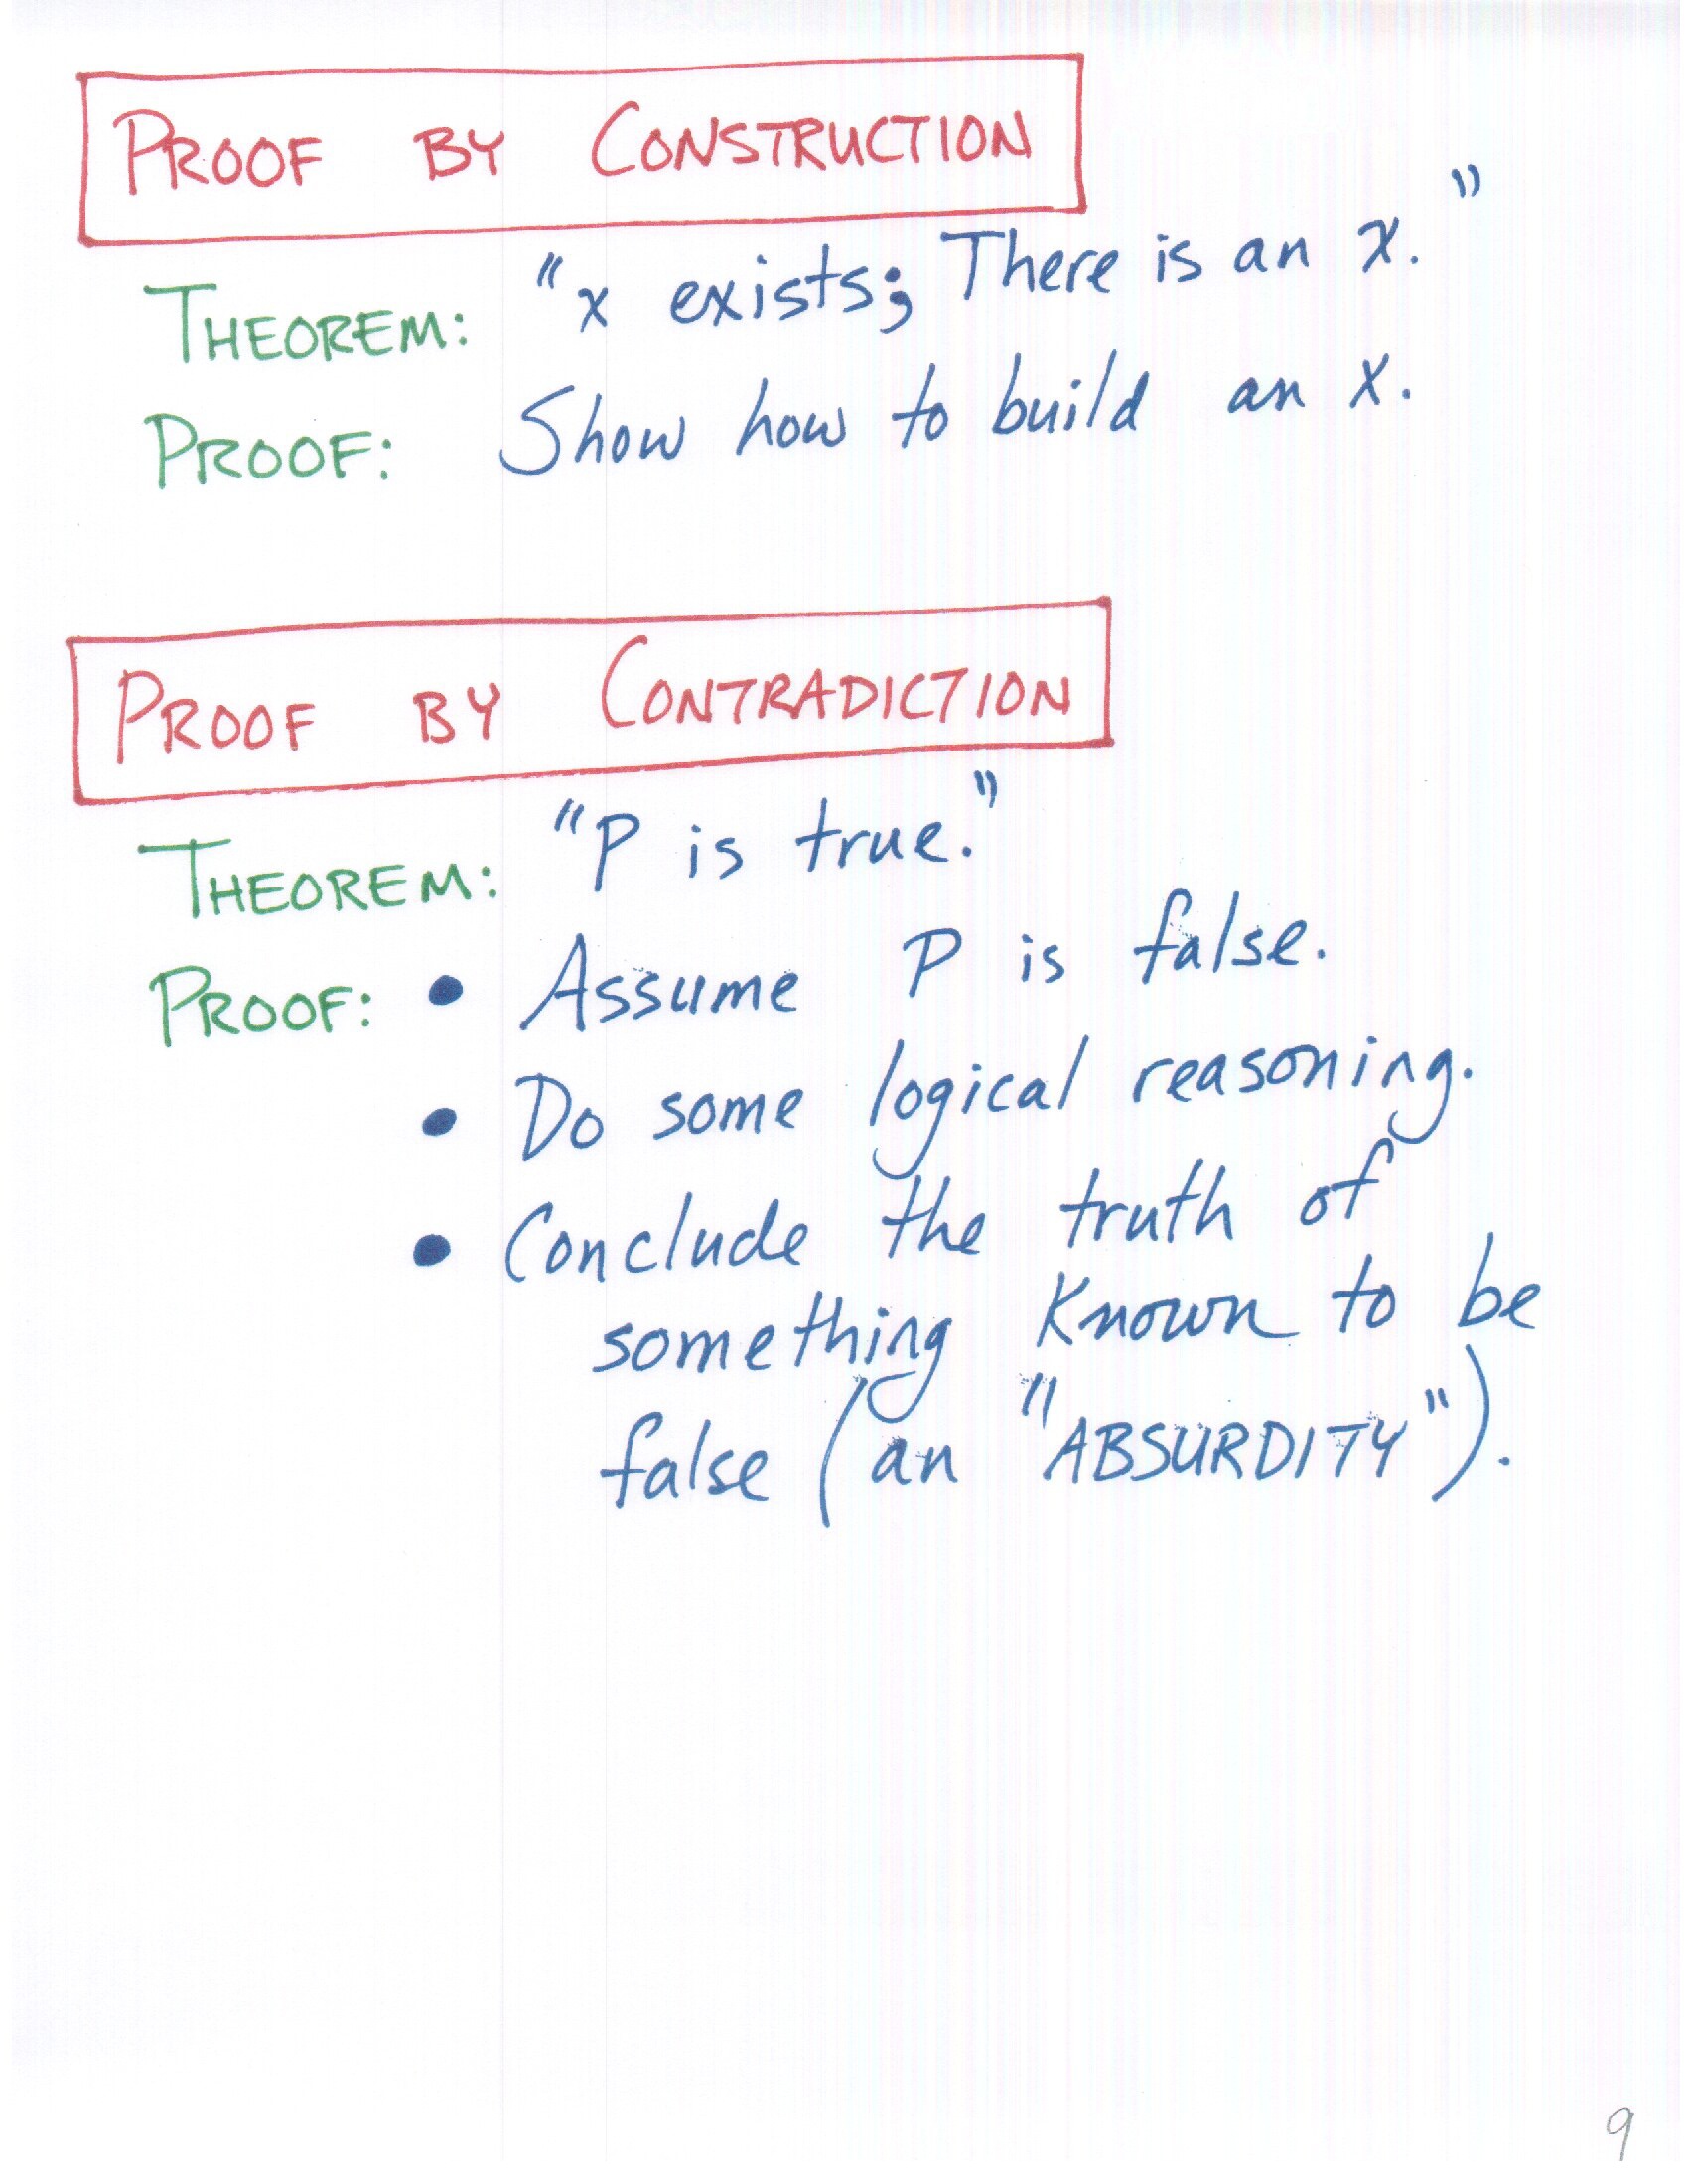 PROOF BY CONSTRUCTION
THEOREM: "x exists; There is an x."
PROOF: Show how to build an x.
PROOF BY CONTRADICTION
THEOREM: "P is true."
PROOF: • Assume P is false.
• Do some logical reasoning.
• Conclude the truth of
something Known to be
false (an "ABSURDITY").
9